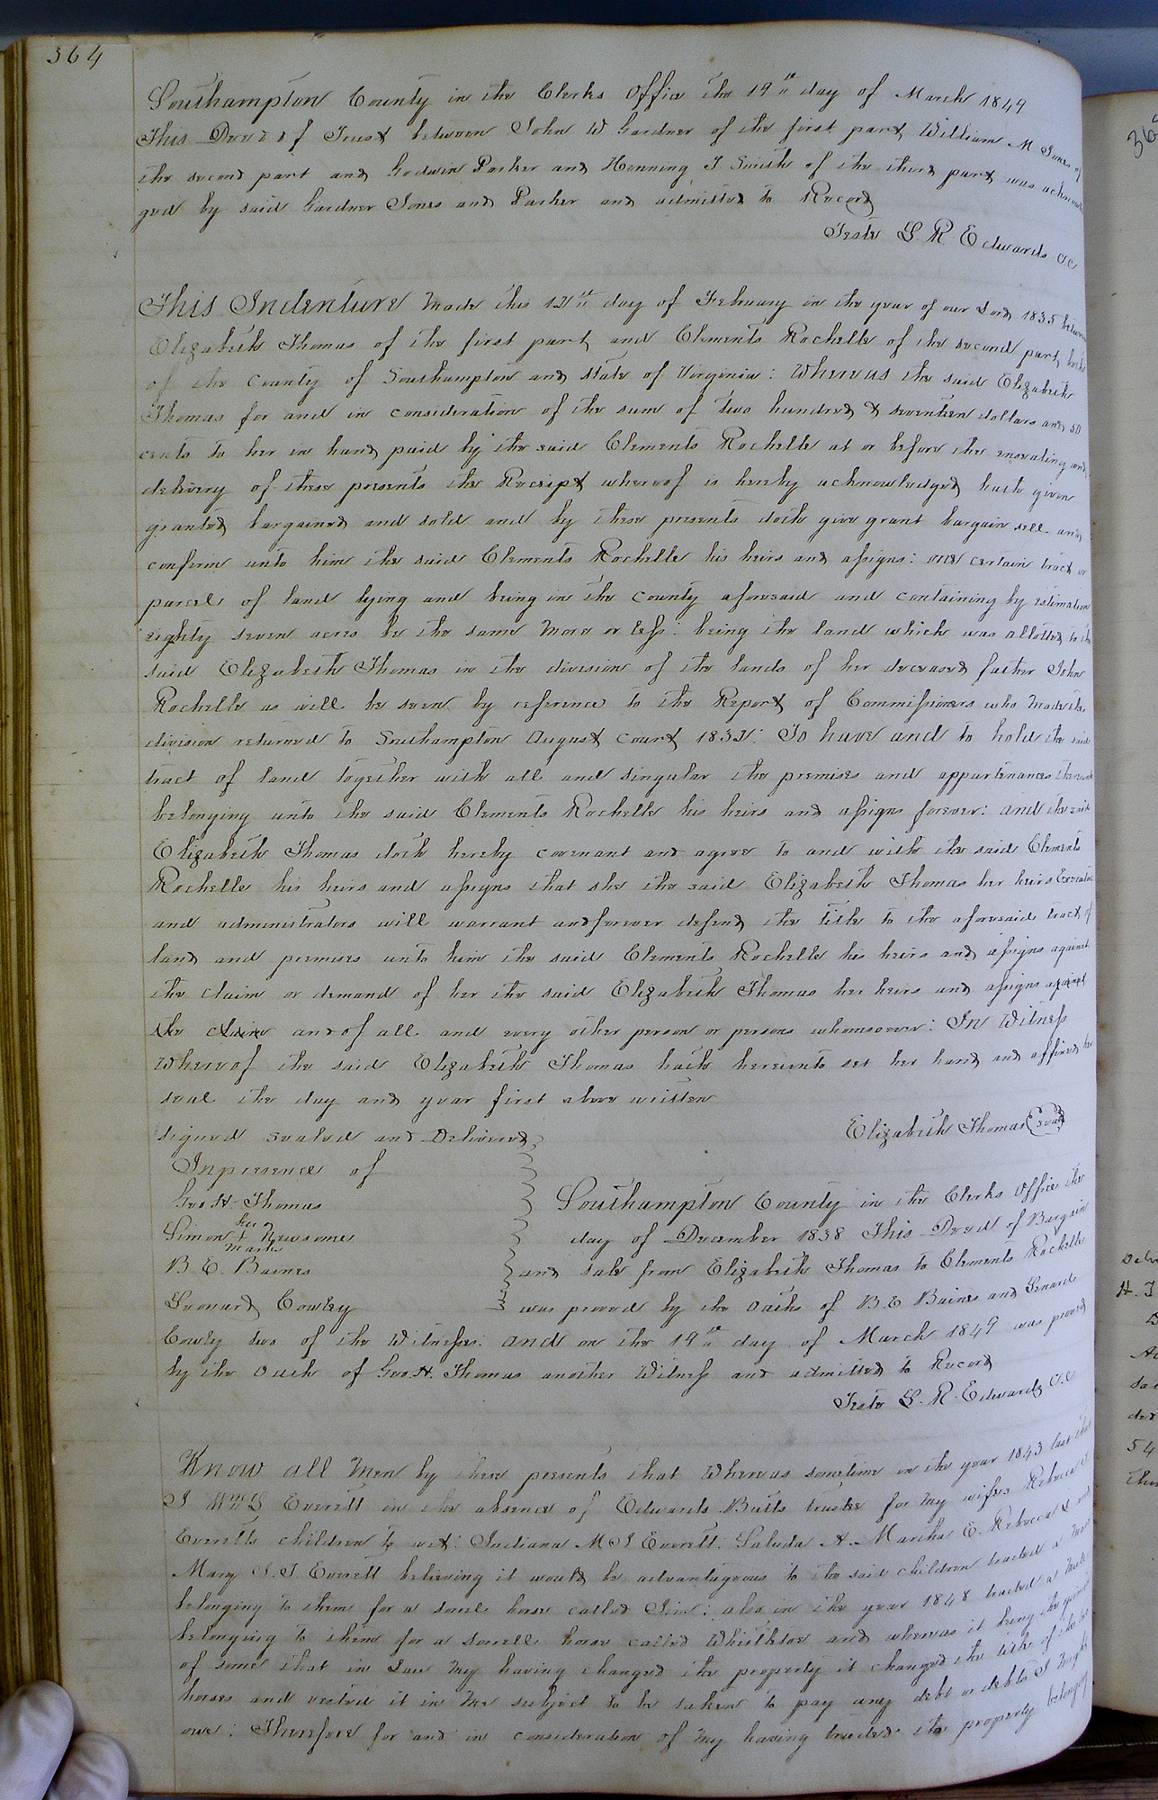 364
Southampton County in the Clerks Office the 19th day of March 1849
This Deed of Trust between John W Gardner of the first part, William M Jones of
the second part and Godwin Parker and Henning T Smith of the third part was acknowled
ged by said Gardner Jones and Parker and admitted to Record
Teste L. R. Edwards C.C
This Indenture Made this 12th day of February in the year of our Lord 1835 between
Elizabeth Thomas of the first part, and Clements Rochelle of the second part, both
of the County of Southampton and State of Virginia: Whereas the said Elizabeth
Thomas for and in consideration of the sum of two hundred & seventeen dollars and 50
cents to her in hand paid by the said Clements Rochelle at or before the ensealing and
delivery of these presents the Receipt whereof is hereby acknowledged hath given
granted bargained and sold and by these presents doth give grant bargain sell and
confirm unto him the said Clements Rochelle his heirs and assigns: one certain tract or
parcel of land lying and being in the County aforesaid and containing by estimation
eighty seven acres be the same more or less: being the land which was allotted to the
said Elizabeth Thomas in the division of the lands of her deceased father John
Rochelle as will be seen by reference to the Report of Commissioners who made the
division returned to Southampton August Court 1832: To have and to hold the said
tract of land together with all and singular the premises and appurtenances thereunto
belonging unto the said Clements Rochelle his heirs and assigns forever: and the said
Elizabeth Thomas doth hereby covenant and agree to and with the said Clements
Rochelle his heirs and assigns that she the said Elizabeth Thomas her heirs Executors
and administrators will warrant and forever defend the title to the aforesaid tract of
land and premises unto him the said Clements Rochelle his heirs and assigns against
the claim or demand of her the said Elizabeth Thomas her heirs and assigns against
the claim and of all and every other person or persons whomsoever: In Witness
Whereof the said Elizabeth Thomas hath hereunto set her hand and affixed her
seal the day and year first above written
Elizabeth Thomas (Seal)
Signed sealed and Delivered
In presence of
Geo H. Thomas
Simon his + mark Newsome
B. E. Baines
Leonard Cowley
Southampton County in the Clerks Office the
day of December 1838 This Deed of Bargain
and sale from Elizabeth Thomas to Clements Rochelle
was proved by the Oaths of B. E Baines and Lenard
Cowley two of the Witnesses. and on the 19th day of March 1849 was proved
by the Oath of Geo H. Thomas another Witness and admitted to Record
Teste L. R. Edwards C.C
Know all Men by these presents that Whereas sometime in the year 1843 last that
I Everett in the absence of Edwards Butts trustee for my wifes Rebecca
Everetts children to wit: Indiana M Everett. Saluda A. Martha E. Rebecca
Mary S. T. Everett believing it would be advantageous to the said children traded a
belonging to them for a sorrel horse called also in the year 1848 traded a
belonging to them for a sorrell horse called and whereas it being the
of some that in Law my having changed the property it changed the title of the
horses and vested it in me subject to be taken to pay any debt or debts I
owe: Therefore for and in consideration of my having traded the property belonging